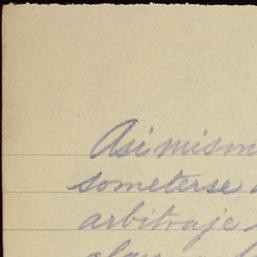 Asi mism
someterse
arbitraje